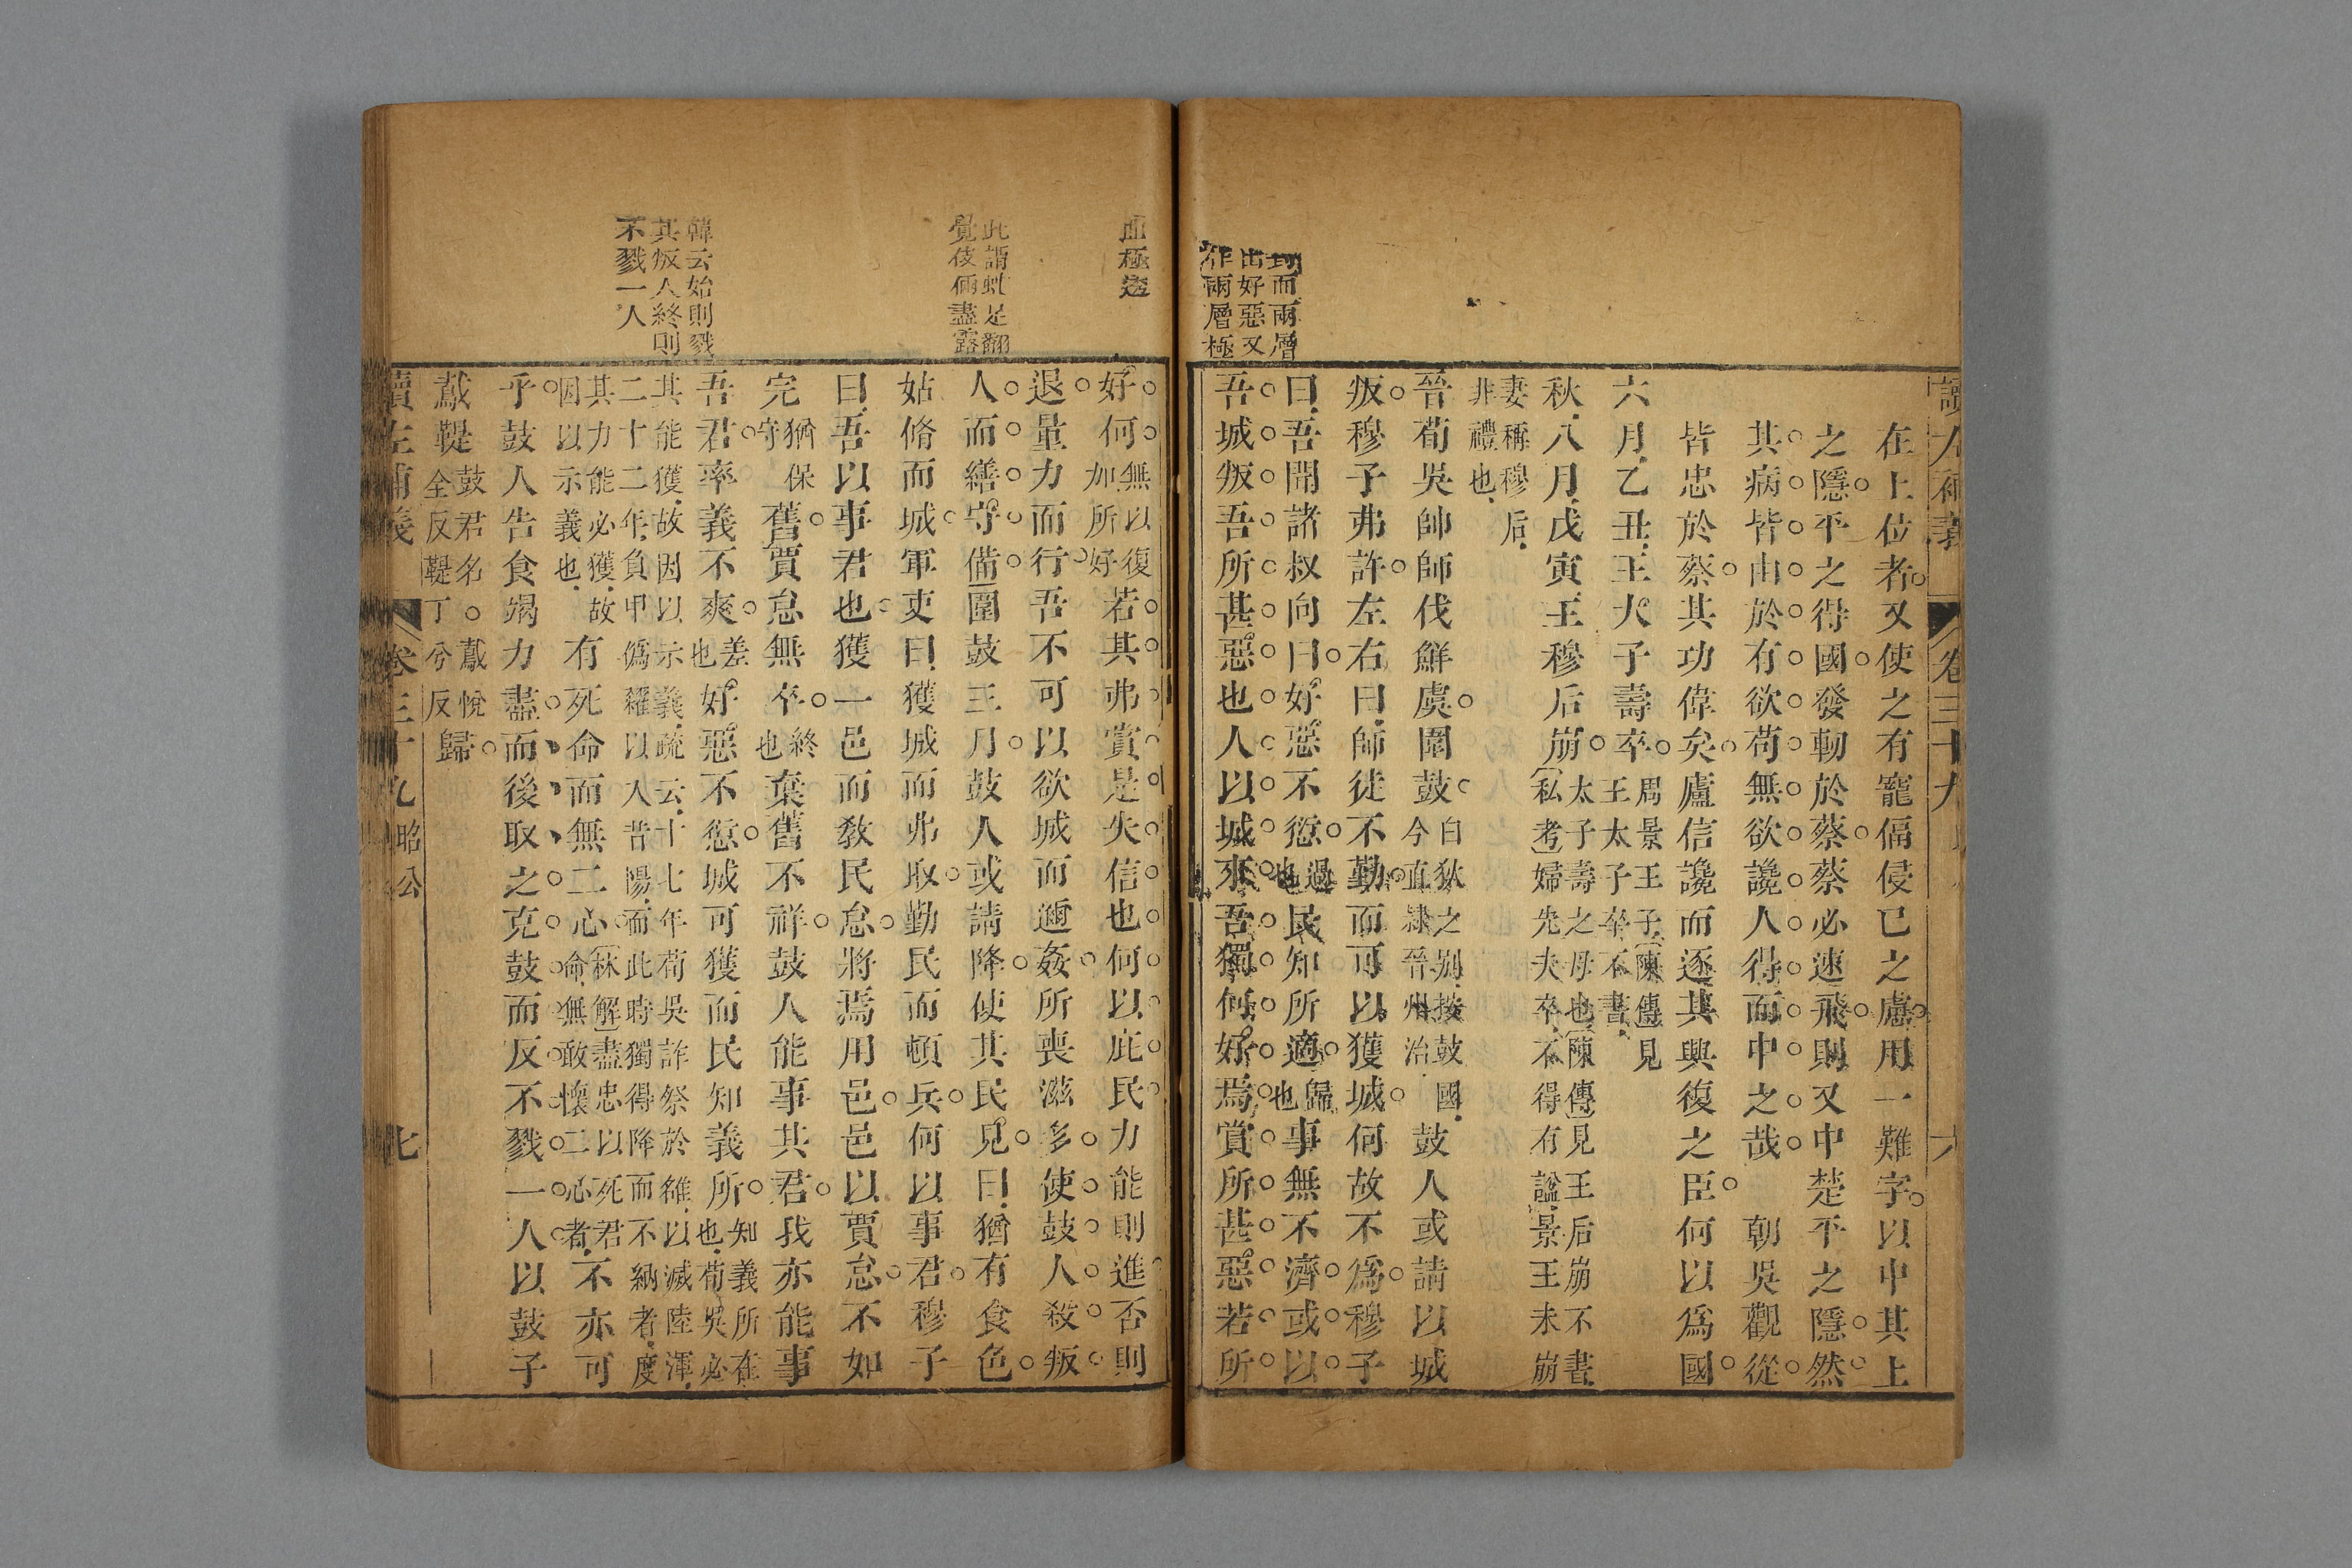 讀左補義 卷三十九 六
在上位者又使之有寵偪侵已之慮用一難字以中其上
之隱平之得國發軔於蔡蔡必速飛則又中楚平之隱然
其病皆由於有欲苟無欲讒人得而中之哉 朝吳觀從
皆忠於蔡其功偉矣盧信讒而逐其興復之臣何以爲國
六月乙丑王大子壽卒
周景王子陳傳見
王太子卒不書
秋八月戊寅王穆后崩
太子壽之母也陳傳見王后崩不書
私考婦先夫卒不得有諡景王未崩
妻稱穆后
非禮也
晉荀吳帥師伐鮮虞圍鼓
白狄之别按鼓國
今直隸晉州治
鼓人或請以城
叛穆子弗許左右曰師徒不勤而可以獲城何故不爲穆子
曰吾聞諸叔向曰好惡不愆
過
也
民知所適
歸
也
事無不濟或以
吾城叛吾所甚惡也人以城來吾獨何好焉賞所甚惡若所
而兩層
出好惡又
作兩層極
血極
好何
無以復
加所好
若其弗賞是失信也何以庇民力能則進否則
退量力而行吾不可以欲城而邇姦所喪滋多使鼓人殺叛
人而繕守備圍鼓三月鼓人或請降使其民見曰猶有食色
此謂蛇足翻
覺伎倆盡露
姑脩而城軍吏曰獲城而弗取勤民而頓兵何以事君穆子
曰吾以事君也獲一邑而敎民怠將焉用邑邑以賈怠不如
完
猶保
守
舊賈怠無卒
終
也
棄舊不祥鼓人能事其君我亦能事
吾君率義不爽
差
也
好惡不愆城可獲而民知義所
知義所在
也荀吳必
韓云始則戮
其叛人終則
不戮一人
其能獲故因以示義疏云十七年荀吳詐祭於雒以滅陸渾
二十二年負甲僞糴以入昔陽而此時獨得降而不納者度
其力能必獲故
因以示義也
有死命而無二心
林解盡忠以死君
命無敢懷二心者
不亦可
乎鼓人告食竭力盡而後取之克鼓而反不戮一人以鼓子
䳒鞮
鼓君名○䳒悅
全反鞮丁兮反
歸
讀左補義 卷三十九 昭公 七